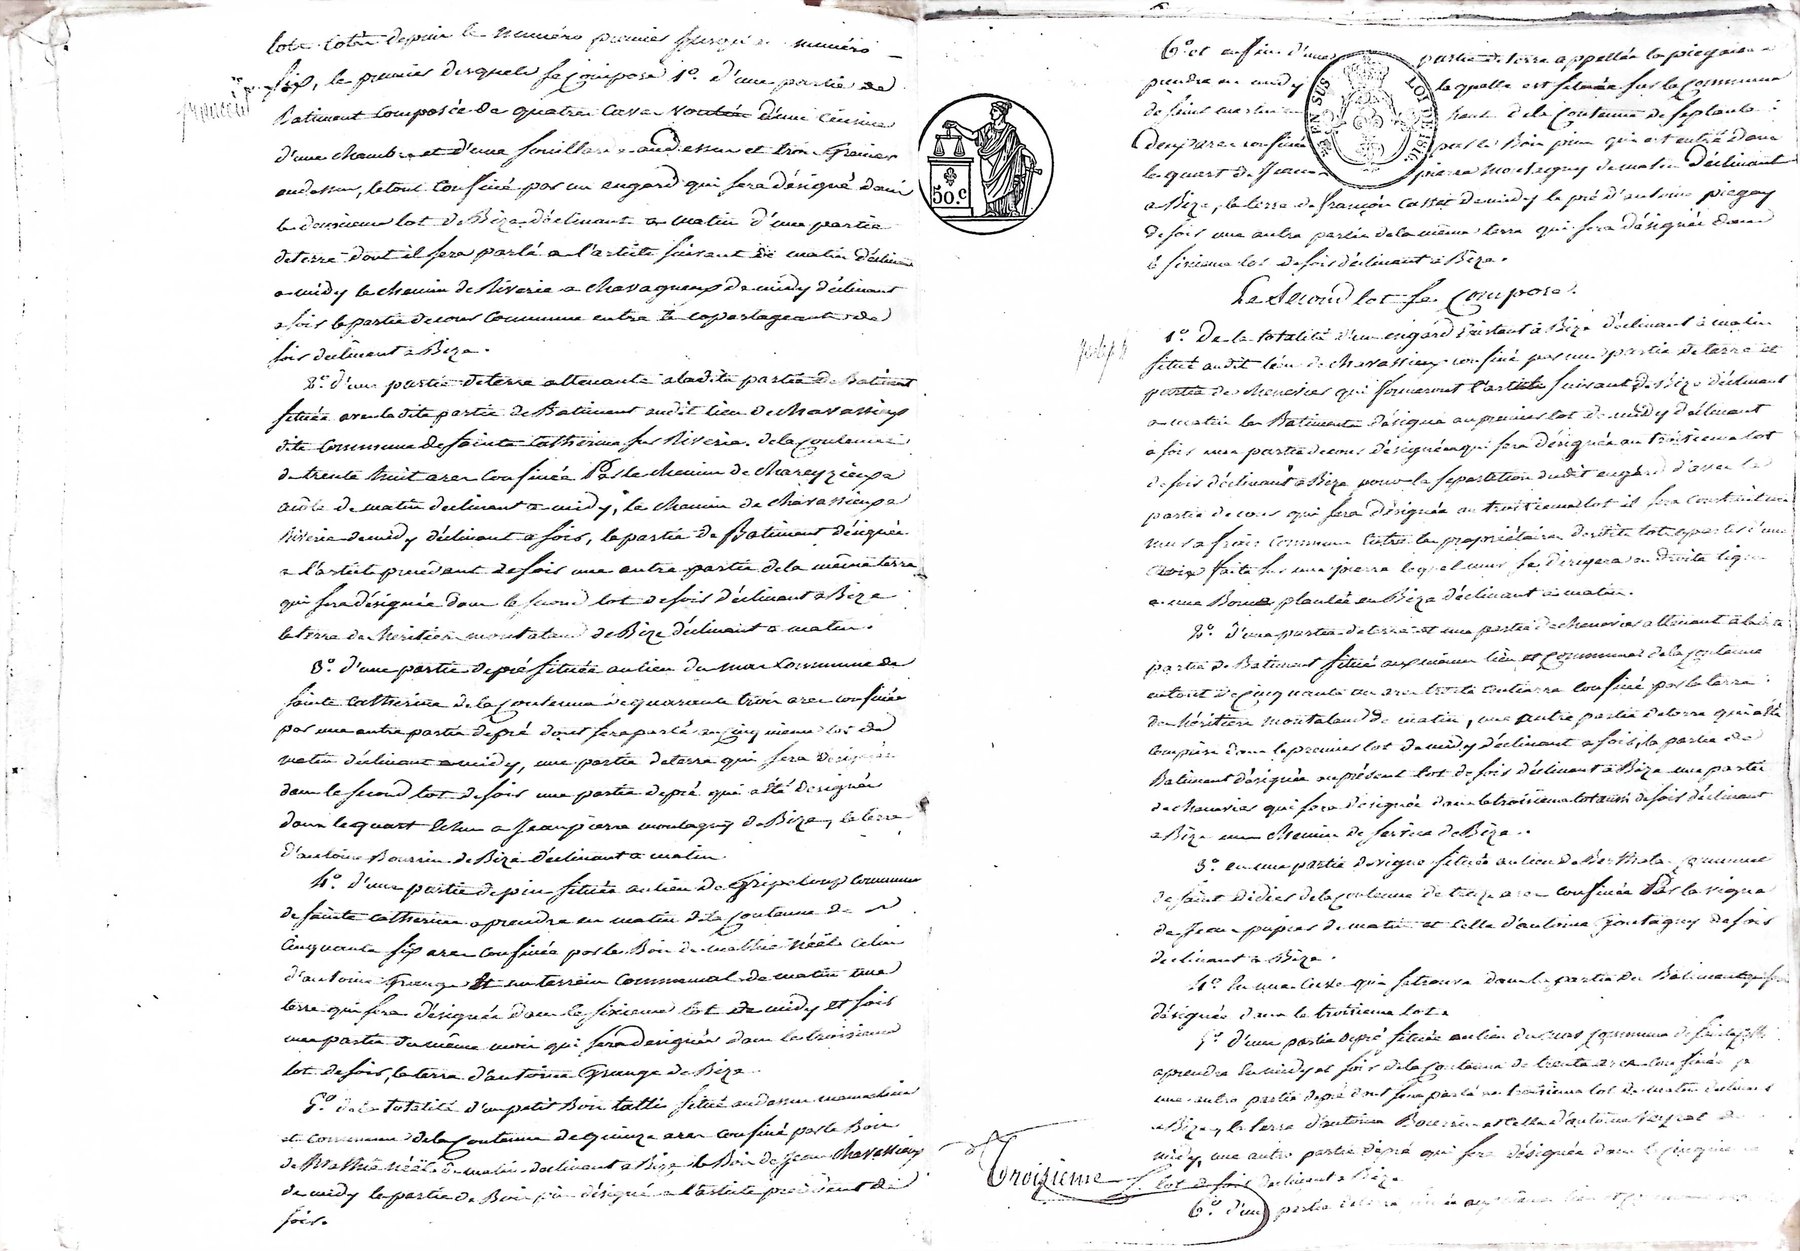 lots cotés depuis le numéro premier jusqu'au numéro
six, le premier desquels se compose 1º. d'une partie de
Batiment composée de quatre cave voutée d'une cuisine
d'une chambre et d'une souillarde audessus et trois Greniers
audessus, le tout confiné par un engard qui sera désigné dans
le deuxieme lot de Bize déclinant a matin d'une partie
deterre dont il sera parlé a l'article suivant de matin déclinant
a midy le chemin de Riverie a chavagneux de midy déclinant
a soir la partie de cour commune entre le copartageants de
soir déclinant a Bize.
2º. d'une partie deterre attenante aladite partie de Batiment
située avec ladite partie de Batiment audit lieu de chavassieux
dite commune de Sainte Catherine sur Riverie. de la contenue
de trente huit ares confinée Par le chemin de chareyzieux a
de matin déclinant a midy, le chemin de chavassieux a
Riverie de midy déclinant a soir, la partie de Batiment désignée
a l'article précédant de soir une autre partie de la même terre
qui sera désignée dans le second lot de soir déclinant a Bize
la terre des héritiers montaland de Bize déclinant a matin.
3º. d'une partie de pré située au lieu du mas Commune de
Sainte Catherine de la Contenue de quarante trois ares confinée
par une autre partie de pré dont sera parlé au Cinquieme lot de
matin déclinant a midy, une partie de terre qui sera désignée
dans le second lot de soir une partie de pré qui a été désignée
dans le quart échu a Jean pierre montagny de Bize, la terre
d'antoine Bourrin de Bize déclinant a matin.
4º. d'une partie de pin située au lieu de Gripeloup Commune
de Sainte Catherine a prendre en matin de la Contenue de
Cinquante six ares confinée par le Bois de mathie Néel Celui
d'antoine Grange Et un terrein Communal de matin une
terre qui sera désignée dans le sixieme lot de midy et soir
une partie du même qui sera désignée dans le troisieme
lot de soir, la terre d'antoine Grange de Bize.
5º. de la totalité d'un petit Bois tailli situé audessus mêmes lieu
et commune de la Contenue de quinze ares confiné par le Bois
de Mathie Néel de matin déclinant a Bize, le Bois de Jean Chavassieux
de midy la partie de Bois pin désigné a l'article précédent de
soir.
6º. et enfin d'une partie de terre appellée la
prendre en midy laquelle est située sur la Commune
de Saint martin en haut de la Contenue de septante
Cinq ares confinée par le Bois pin qui est entré dans
le quart de Jean pierre Montagny de matin déclinant
a Bize, la terre de françois Cassct de midy le pré d'antoine piegay
de soir une autre partie de la même terre qui sera désignée dans
le sixieme lot de soir déclinant a Bize.
Le Second lot se Compose.
1º. De la totalité d'un engard Existant a Bize déclinant a matin
situé audit lieu de chavassieux confiné par une partie de terre et
partie de cheneviers qui formeront l'article suivant de Bize déclinant
a matin les Batiments désigné au premier lot de midy déclinant
a soir une partie de cour désignée qui sera désignée au troisieme lot
de soir déclinant a Bize pour la séparation dudit engard d'avec la
partie de cour qui sera désignée au troisieme lot il sera construit un
mur a frais communs entre les propriétaires desdits lots a partir d'une
Croix faite sur une pierre lequel mur se dirigera en droite ligne
a une Borne plantée en Bize déclinant a matin.
2º. d'une partie de terre et une partie de cheneviers attenant a ladite
partie de Batiment située aux mêmes lieu et Commune de la Contenue
en tout de Cinquante un ares trente centiares confinée par la terre
des héritiers montaland de matin, une autre partie de terre qui a été
Comprise dans le premier lot de midy déclinant a soir, la partie de
Batiment désignée au présent lot de soir déclinant a Bize une partie
de cheneviers qui sera désignée dans le troisieme lot aussi de soir déclinant
a Bize un chemin de service de Bize.
3º. en une partie de vigne située au lieu de Berthola Commune
de Saint Didier de la Contenue de treize ares confinée Par la vigne
de Jean pupier de matin et Celle d'antoine Montagny de soir
déclinant a Bize.
4º. En une Cave qui se trouve dans la partie du Batiment qui sera
désignée dans le troisieme lot.
5º. d'une partie de pré située au lieu du mas Commune de
a prendre En midy et soir de la Contenue de trente ares confinée
une autre partie de pré dont sera parlé au troisieme lot de matin déclinant
a Bize, la terre d'antoine Bourrin et Celle d'antoine de
midy, une autre partie de pré qui sera désignée dans le cinquieme
lot de soir déclinant a Bize.
6º. d'une partie de terre
50.c
EN SUS
LOI DE 1816
Troisieme